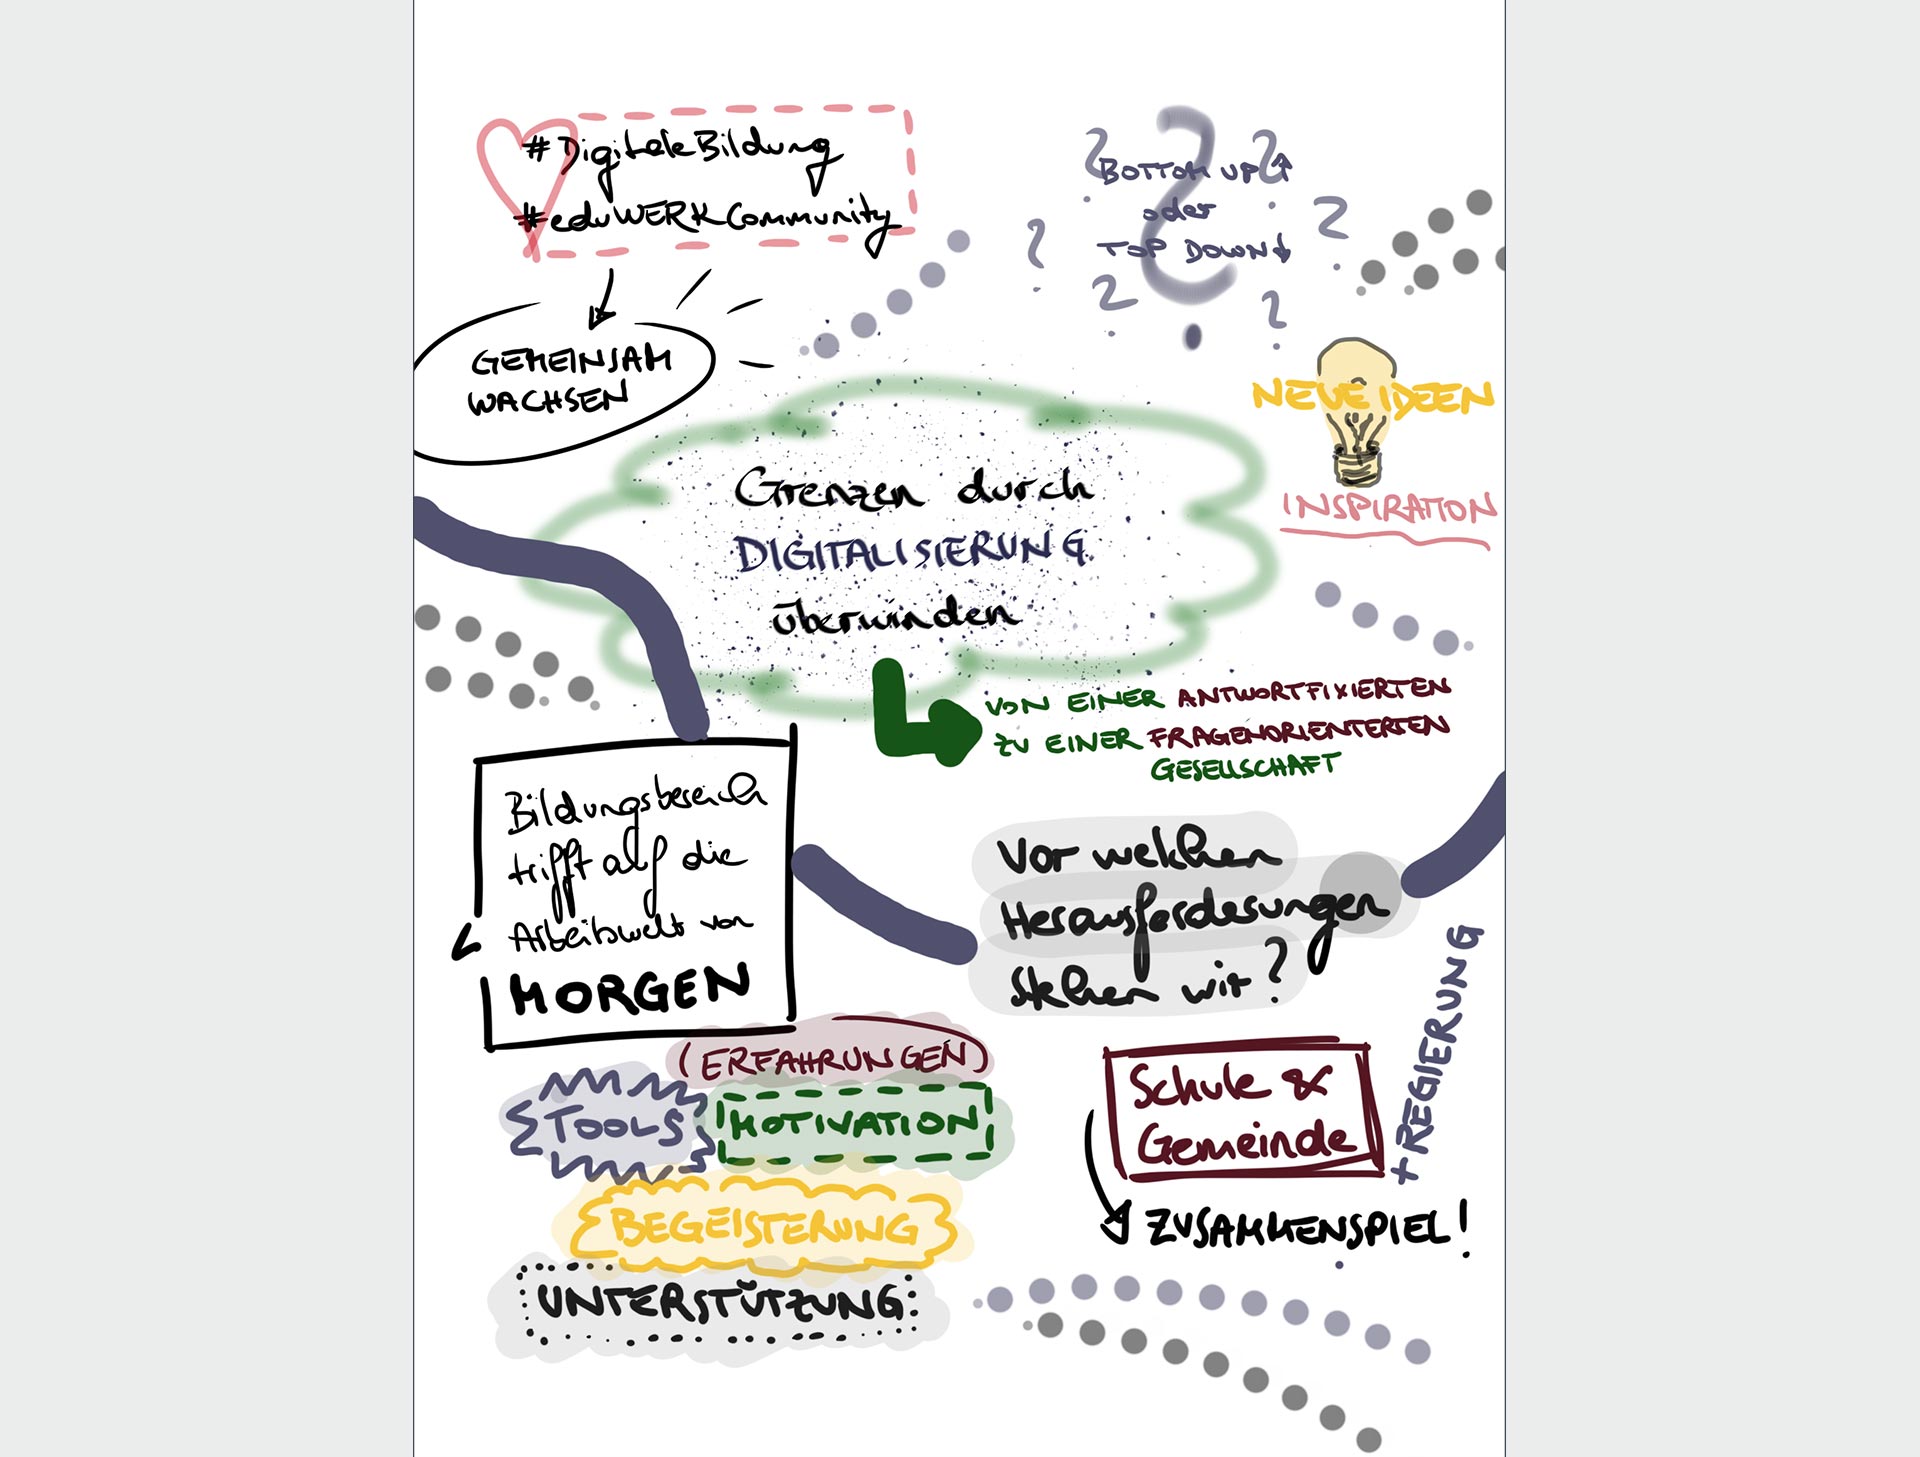 #DigitaleBildung
#eduWERKCommunity
GEMEINSAM
WACHSEN
BOTTOM UP
oder
TOP DOWN
NEUE IDEEN
INSPIRATION
Grenzen durch
DIGITALISIERUNG
überwinden
VON EINER ANTWORTFIXIERTEN
ZU EINER FRAGENORIENTERTEN
GESELLSCHAFT
Bildungsbereich
trifft auf die
Arbeitswelt von
MORGEN
Vor welchen
Herausforderungen
stehen wir?
(ERFAHRUNGEN)
TOOLS
MOTIVATION
BEGEISTERUNG
UNTERSTÜTZUNG
Schule &
Gemeinde
+REGIERUNG
ZUSAMMENSPIEL!